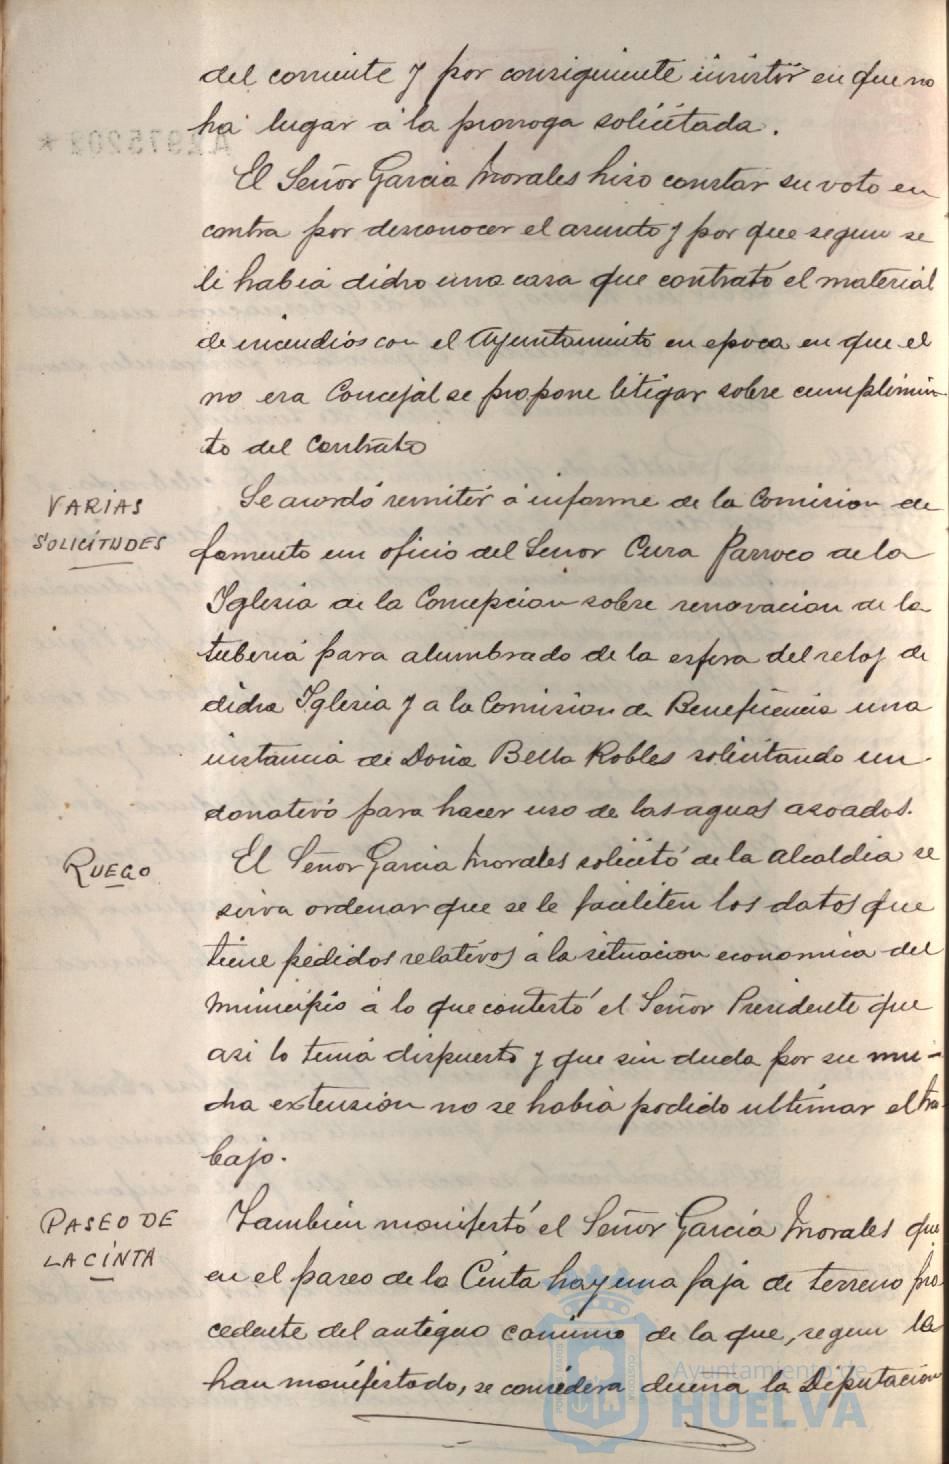 del corriente y por consiguiente insistir en que no
ha lugar á la prorroga solicitada.
El Señor Garcia Morales hizo constar su voto en
contra por desconocer el asunto y por que segun se
le habia dicho una casa que contrató el material
de incendios con el Ayuntamiento en epoca en que el
no era Concejal se propone litigar sobre cumplimien-
to del contrato
VARIAS
SOLICITUDES
Se acordó remitir á informe de la Comision de
fomento un oficio del Señor Cura Parroco de la
Iglesia de la Concepcion sobre renovacion de la
tuberia para alumbrado de la esfera del reloj de
dicha Iglesia y a la Comision de Beneficencia una
instancia de Doña Bella Robles solicitando un
donativo para hacer uso de las aguas azoados.
RUEGO
El Señor Garcia Morales solicitó de la alcaldia se
sirva ordenar que se le faciliten los datos que
tiene pedidos relativos á la situacion economica del
Municipio á lo que contestó el Señor Presidente que
asi lo tenia dispuesto y que sin duda por su mu-
cha extension no se habia podido ultimar el tra-
bajo.
PASEO DE
LA CINTA
Tambien manifestó el Señor Garcia Morales que
en el paseo de la Cinta hay una faja de terreno pro
cedente del antiguo camino de la que, segun le
han manifestado, se considera duena la Diputacion
Ayuntamiento de
HUELVA